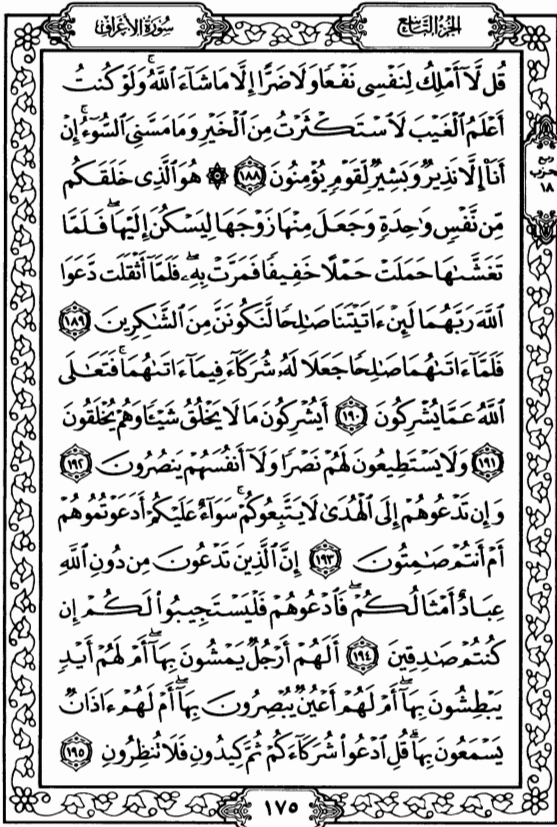 سُورَةُ الأَعْرَافِ
الجُزْءُ التَّاسِعُ
قُل لَّآ أَمْلِكُ لِنَفْسِى نَفْعًا وَلَا ضَرًّا إِلَّا مَا شَآءَ ٱللَّهُ ۚ وَلَوْ كُنتُ
أَعْلَمُ ٱلْغَيْبَ لَٱسْتَكْثَرْتُ مِنَ ٱلْخَيْرِ وَمَا مَسَّنِىَ ٱلسُّوٓءُ ۚ إِنْ
أَنَا۠ إِلَّا نَذِيرٌ وَبَشِيرٌ لِّقَوْمٍ يُؤْمِنُونَ ١٨٨ ۞ هُوَ ٱلَّذِى خَلَقَكُم
مِّن نَّفْسٍ وَٰحِدَةٍ وَجَعَلَ مِنْهَا زَوْجَهَا لِيَسْكُنَ إِلَيْهَا ۖ فَلَمَّا
تَغَشَّىٰهَا حَمَلَتْ حَمْلًا خَفِيفًا فَمَرَّتْ بِهِۦ ۖ فَلَمَّآ أَثْقَلَت دَّعَوَا
ٱللَّهَ رَبَّهُمَا لَئِنْ ءَاتَيْتَنَا صَٰلِحًا لَّنَكُونَنَّ مِنَ ٱلشَّٰكِرِينَ ١٨٩
فَلَمَّآ ءَاتَىٰهُمَا صَٰلِحًا جَعَلَا لَهُۥ شُرَكَآءَ فِيمَآ ءَاتَىٰهُمَا ۚ فَتَعَٰلَى
ٱللَّهُ عَمَّا يُشْرِكُونَ ١٩٠ أَيُشْرِكُونَ مَا لَا يَخْلُقُ شَيْـًٔا وَهُمْ يُخْلَقُونَ
١٩١ وَلَا يَسْتَطِيعُونَ لَهُمْ نَصْرًا وَلَآ أَنفُسَهُمْ يَنصُرُونَ ١٩٢
وَإِن تَدْعُوهُمْ إِلَى ٱلْهُدَىٰ لَا يَتَّبِعُوكُمْ ۚ سَوَآءٌ عَلَيْكُمْ أَدَعَوْتُمُوهُمْ
أَمْ أَنتُمْ صَٰمِتُونَ ١٩٣ إِنَّ ٱلَّذِينَ تَدْعُونَ مِن دُونِ ٱللَّهِ
عِبَادٌ أَمْثَالُكُمْ ۖ فَٱدْعُوهُمْ فَلْيَسْتَجِيبُوا۟ لَكُمْ إِن
كُنتُمْ صَٰدِقِينَ ١٩٤ أَلَهُمْ أَرْجُلٌ يَمْشُونَ بِهَآ ۖ أَمْ لَهُمْ أَيْدٍ
يَبْطِشُونَ بِهَآ ۖ أَمْ لَهُمْ أَعْيُنٌ يُبْصِرُونَ بِهَآ ۖ أَمْ لَهُمْ ءَاذَانٌ
يَسْمَعُونَ بِهَا ۗ قُلِ ٱدْعُوا۟ شُرَكَآءَكُمْ ثُمَّ كِيدُونِ فَلَا تُنظِرُونِ ١٩٥
ربع
حزب
١٨
١٧٥